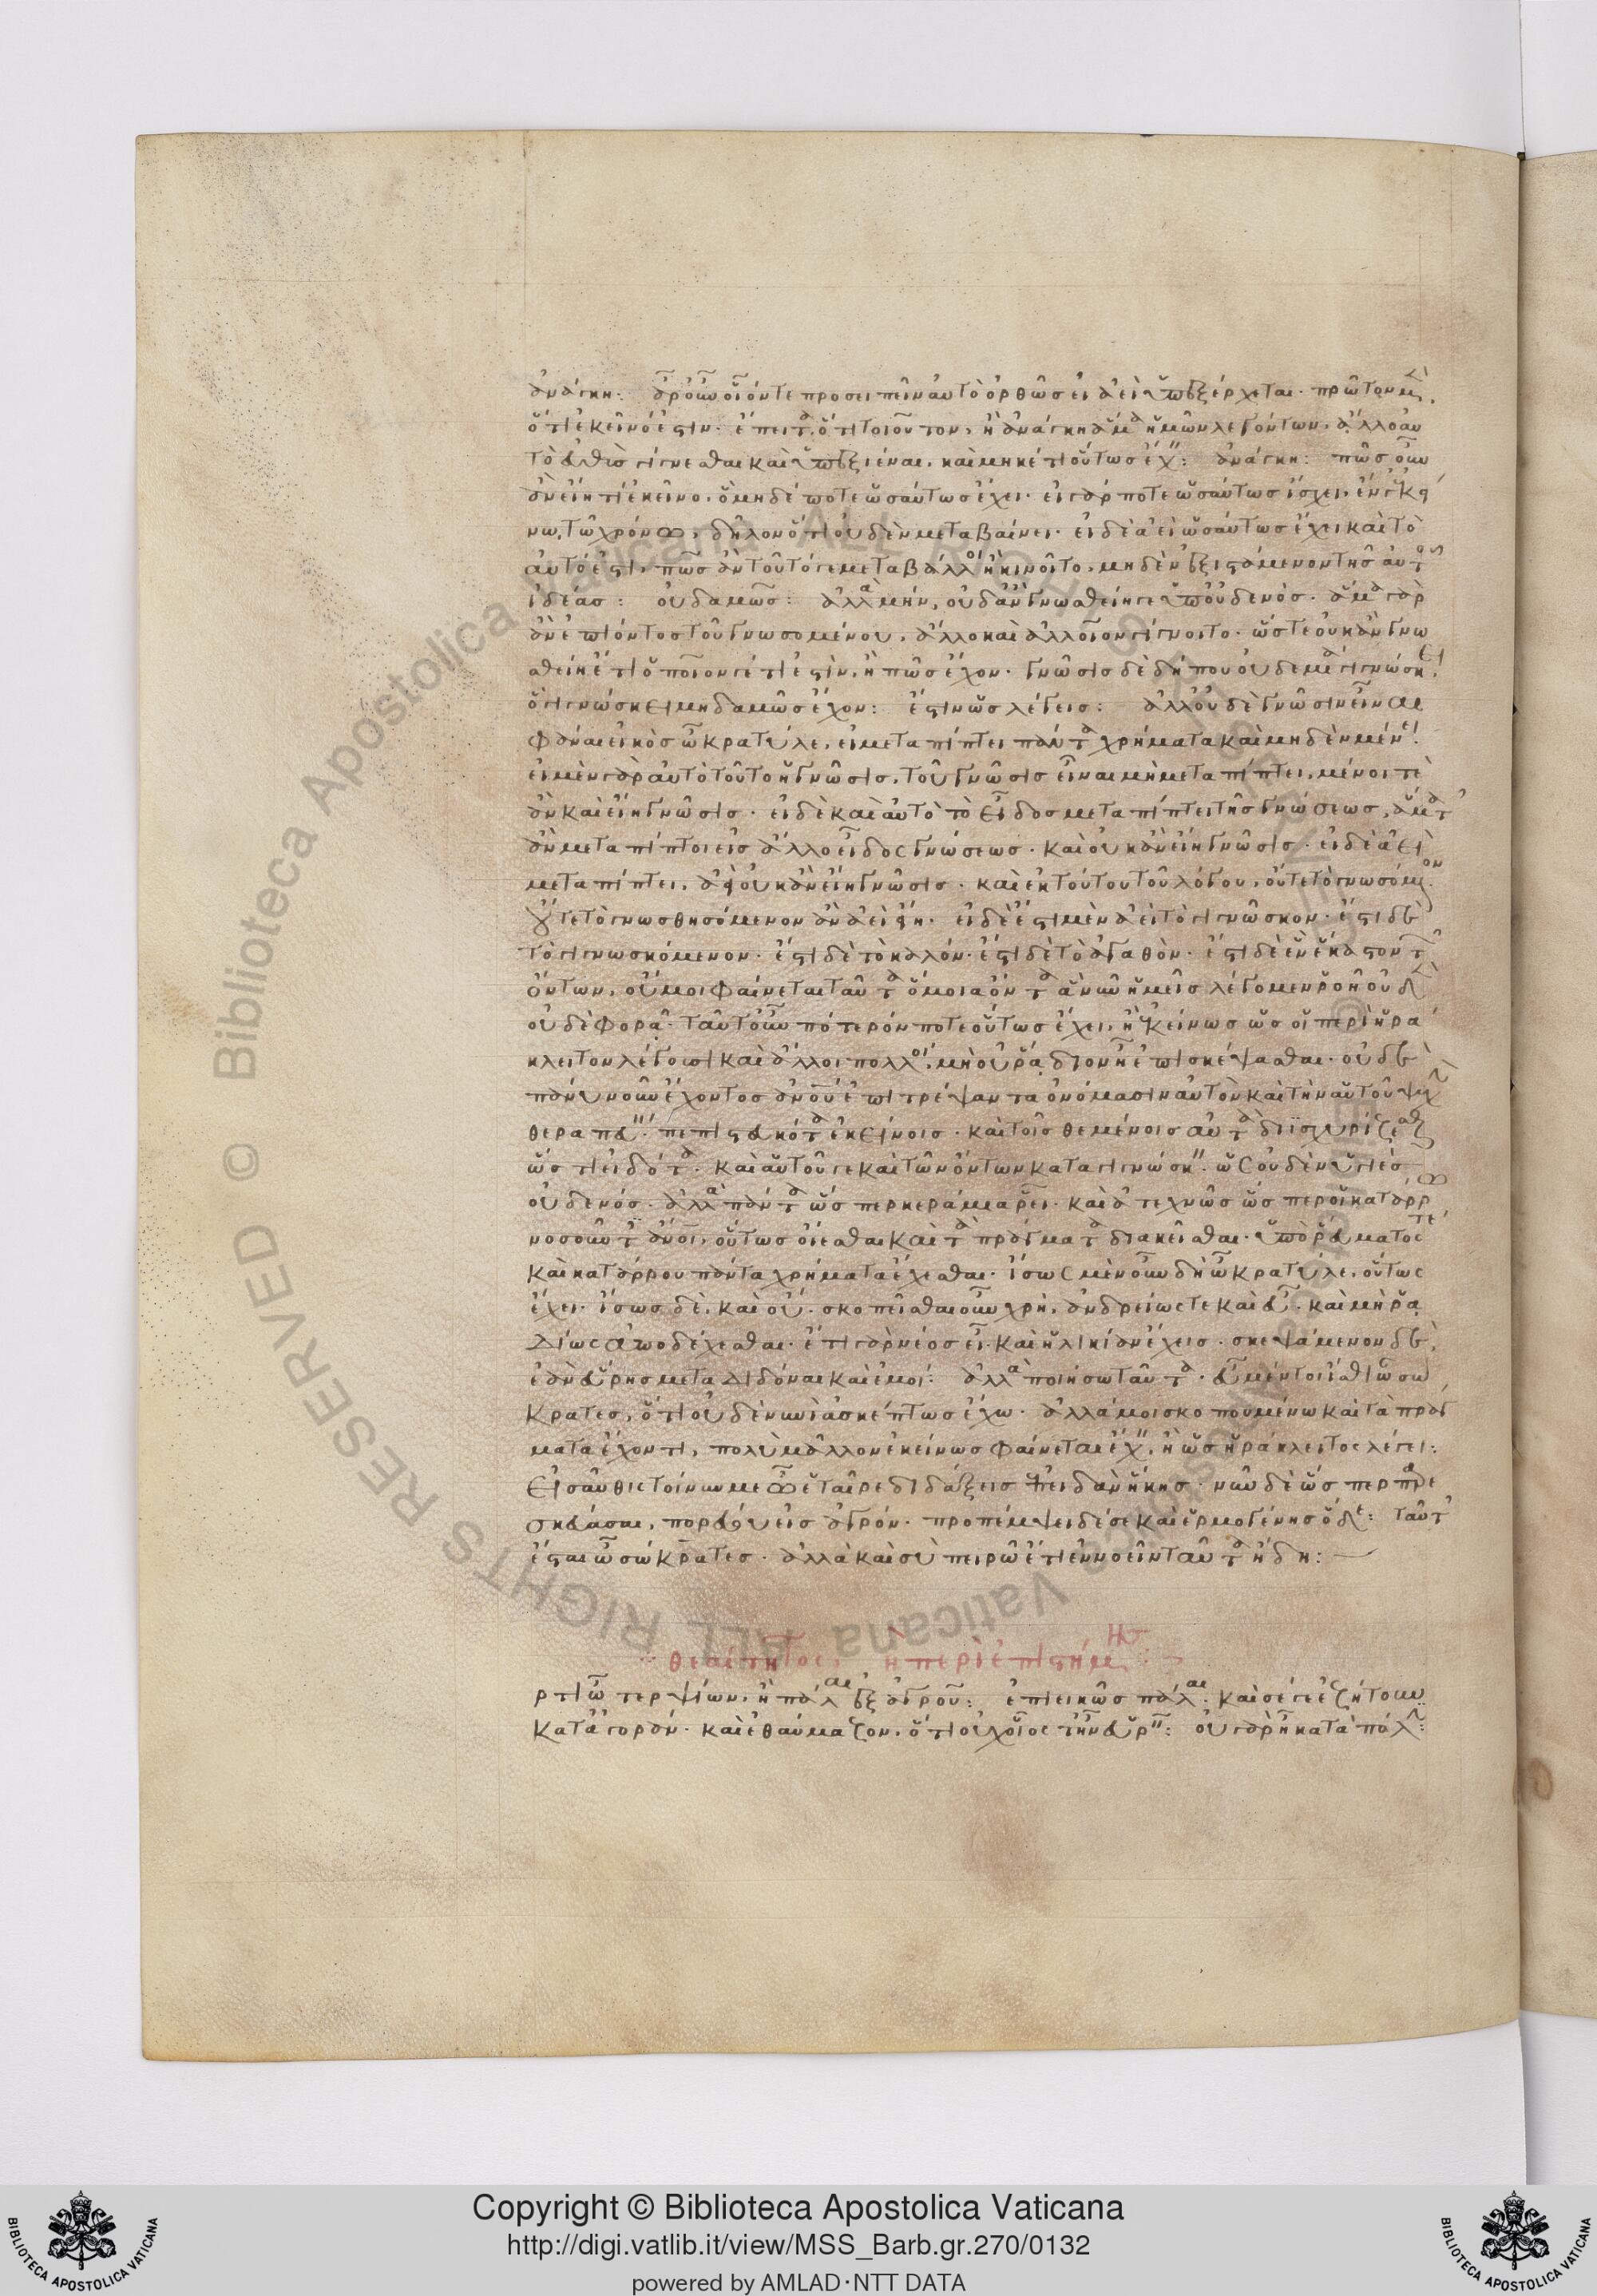 ἀνάγκη: ἆρ' οὖν οἷόν τε προσειπεῖν αὐτὸ ὀρθῶς εἰ ἀεὶ ὑπεξέρχεται· πρῶτον μὲν
ὅτι ἐκεῖνό ἐστιν· ἔπειτα ὅτι τοιοῦτον, ἢ ἀνάγκη ἅμα ἡμῶν λεγόντων, ἄλλο αὐ
τὸ εὐθὺς γίγνεσθαι καὶ ὑπεξιέναι, καὶ μηκέτι οὕτως ἔχειν: ἀνάγκη: πῶς οὖν
ἂν εἴη τὶ ἐκεῖνο, ὃ μηδέποτε ὡσαύτως ἔχει· εἰ γάρ ποτε ὡσαύτως ἴσχει, ἔν γ' ἐκεί
νω τῶ χρόνω, δῆλον ὅτι οὐδὲν μεταβαίνει· εἰ δὲ ἀεὶ ὡσαύτως ἔχει καὶ τὸ
αὐτό ἐστι, πῶς ἂν τοῦτό γε μεταβάλλοι ἢ κινοῖτο, μηδὲν ἐξιστάμενον τῆς αὐτοῦ
ἰδέας: οὐδαμῶς: ἀλλὰ μὴν, οὐδ' ἂν γνωσθείη γε ὑπ' οὐδενός· ἅμα γὰρ
ἂν ἐπιόντος τοῦ γνωσομένου, ἄλλο καὶ ἀλλοῖον γίγνοιτο· ὥστε οὐκ ἂν γνω
σθείη ἔτι ὁποῖόν γέ τι ἐστὶν, ἢ πῶς ἔχον· γνῶσις δὲ δήπου οὐδεμία γιγνώσκει,
ὃ γιγνώσκει μηδαμῶς ἔχον: ἔστιν ὡς λέγεις: ἀλλ' οὐδὲ γνῶσιν εἶναι
φάναι εἰκὸς ὦ κρατύλε, εἰ μεταπίπτει πάντα χρήματα καὶ μηδὲν μένει·
εἰ μὲν γὰρ αὐτὸ τοῦτο ἡ γνῶσις, τοῦ γνῶσις εἶναι μὴ μεταπίπτει, μένοι τὲ
ἂν καὶ εἴη γνῶσις· εἰ δὲ καὶ αὐτὸ τὸ εἶδος μεταπίπτει τῆς γνώσεως, ἅμα τ'
ἂν μεταπίπτοι εἰς ἄλλο εἶδος γνώσεως· καὶ οὐκ ἂν εἴη γνῶσις· εἰ δὲ ἀεὶ
μεταπίπτει, ἀεὶ οὐκ ἂν εἴη γνῶσις· καὶ ἐκ τούτου τοῦ λόγου, οὔτε τὸ γνωσόμενον
οὔτε τὸ γνωσθησόμενον ἂν ἀεὶ εἴη· εἰ δὲ ἔστι μὲν ἀεὶ τὸ γιγνῶσκον· ἔστι δὲ
τὸ γιγνωσκόμενον· ἔστι δὲ τὸ καλόν· ἔστι δὲ τὸ ἀγαθόν· ἔστι δὲ ἓν ἕκαστον τῶν
ὄντων, οὔ μοι φαίνεται ταῦτα ὅμοια ὄντα ἃ νῦν ἡμεῖς λέγομεν ῥοῆ οὐδὲν
οὐδὲ φορᾷ· ταῦτ' οὖν πότερόν ποτε οὕτως ἔχει, ἢ 'κείνως ὡς οἱ περὶ ἡρά
κλειτον λέγουσι καὶ ἄλλοι πολλοί, μὴ οὐ ῥᾴδιον ἦ ἐπισκέψασθαι· οὐδὲ
πάνυ νοῦν ἔχοντος ἀνθρώπου ἐπιτρέψαντα ὀνόμασιν αὐτὸν καὶ τὴν αὑτοῦ ψυχὴν
θεραπεύειν· πεπιστευκότα ἐκείνοις· καὶ τοῖς θεμένοις αὐτὰ διϊσχυρίζεσθαι
ὥς τι εἰδότα· καὶ αὑτοῦ γε καὶ τῶν ὄντων καταγιγνώσκειν· ὡς οὐδὲν ὑγιὲς
οὐδενός· ἀλλὰ πάντα ὥσπερ κεράμια ῥεῖ· καὶ ἀτεχνῶς ὥσπερ οἱ κατάρρω
νοσοῦντες ἄνθρωποι, οὕτως οἴεσθαι καὶ τὰ πράγματα διακεῖσθαι· ὑπὸ ῥεύματός τε
καὶ κατάρρου πάντα χρήματα ἔχεσθαι· ἴσως μὲν οὖν δὴ ὦ κρατύλε, οὕτως
ἔχει· ἴσως δὲ, καὶ οὔ· σκοπεῖσθαι οὖν χρὴ, ἀνδρείως τε καὶ εὖ· καὶ μὴ ῥᾳ
δίως ἀποδέχεσθαι· ἔτι γὰρ νέος εἶ· καὶ ἡλικίαν ἔχεις· σκεψάμενον δὲ,
ἐὰν εὕρης μεταδιδόναι καὶ ἐμοί: ἀλλὰ ποιήσω ταῦτα· εὖ μέντοι ἴσθι ὦ σώ
κρατες, ὅτι οὐδὲ νυνὶ ἀσκέπτως ἔχω· ἀλλά μοι σκοπουμένω καὶ τὰ πράγ
ματα ἔχοντι, πολὺ μᾶλλον ἐκείνως φαίνεται ἔχειν, ἢ ὡς ἡράκλειτος λέγει:
εἰσαῦθις τοίνυν με ὦ ἑταῖρε διδάξεις ἐπειδὰν ἥκης· νῦν δὲ ὥσπερ παρε
σκεύασαι, πορεύου εἰς ἀγρόν· προπέμψει δέ σε καὶ ἑρμογένης ὅδε: ταῦτ'
ἔσται ὦ σώκρατες· ἀλλὰ καὶ σὺ πειρῶ ἔτι ἐννοεῖν ταῦτα ἤδη:
θεαίτητος, ἢ περὶ ἐπιστήμης:
ρτι ὦ τερψίων, ἢ πάλαι ἐξ ἀγροῦ: ἐπιεικῶς πάλαι· καὶ σέ γε ἐζήτουν
κατ' ἀγοράν· καὶ ἐθαύμαζον, ὅτι οὐχ οἷός τ' ἦν εὑρεῖν: οὐ γὰρ ἦ κατὰ πόλιν:
Copyright © Biblioteca Apostolica Vaticana
http://digi.vatlib.it/view/MSS_Barb.gr.270/0132
powered by AMLAD·NTT DATA